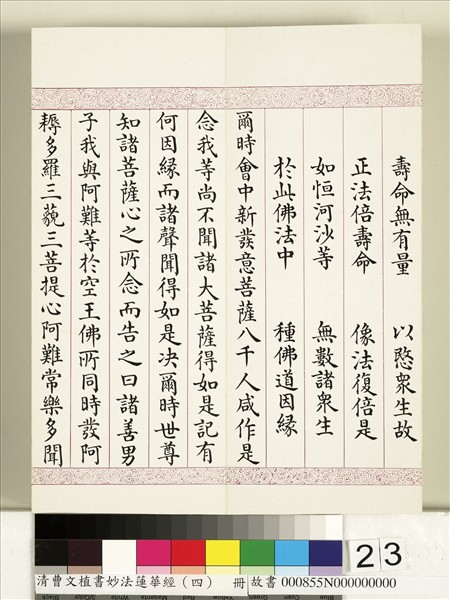 壽命無有量　以愍衆生故
正法倍壽命　像法復倍是
如恒河沙等　無數諸衆生
於此佛法中　種佛道因緣
爾時會中新發意菩薩八千人咸作是
念我等尚不聞諸大菩薩得如是記有
何因緣而諸聲聞得如是决爾時世尊
知諸菩薩心之所念而告之曰諸善男
子我與阿難等於空王佛所同時發阿
耨多羅三藐三菩提心阿難常樂多聞
23
清曹文植書妙法蓮華經（四）　冊 故書 000855N000000000